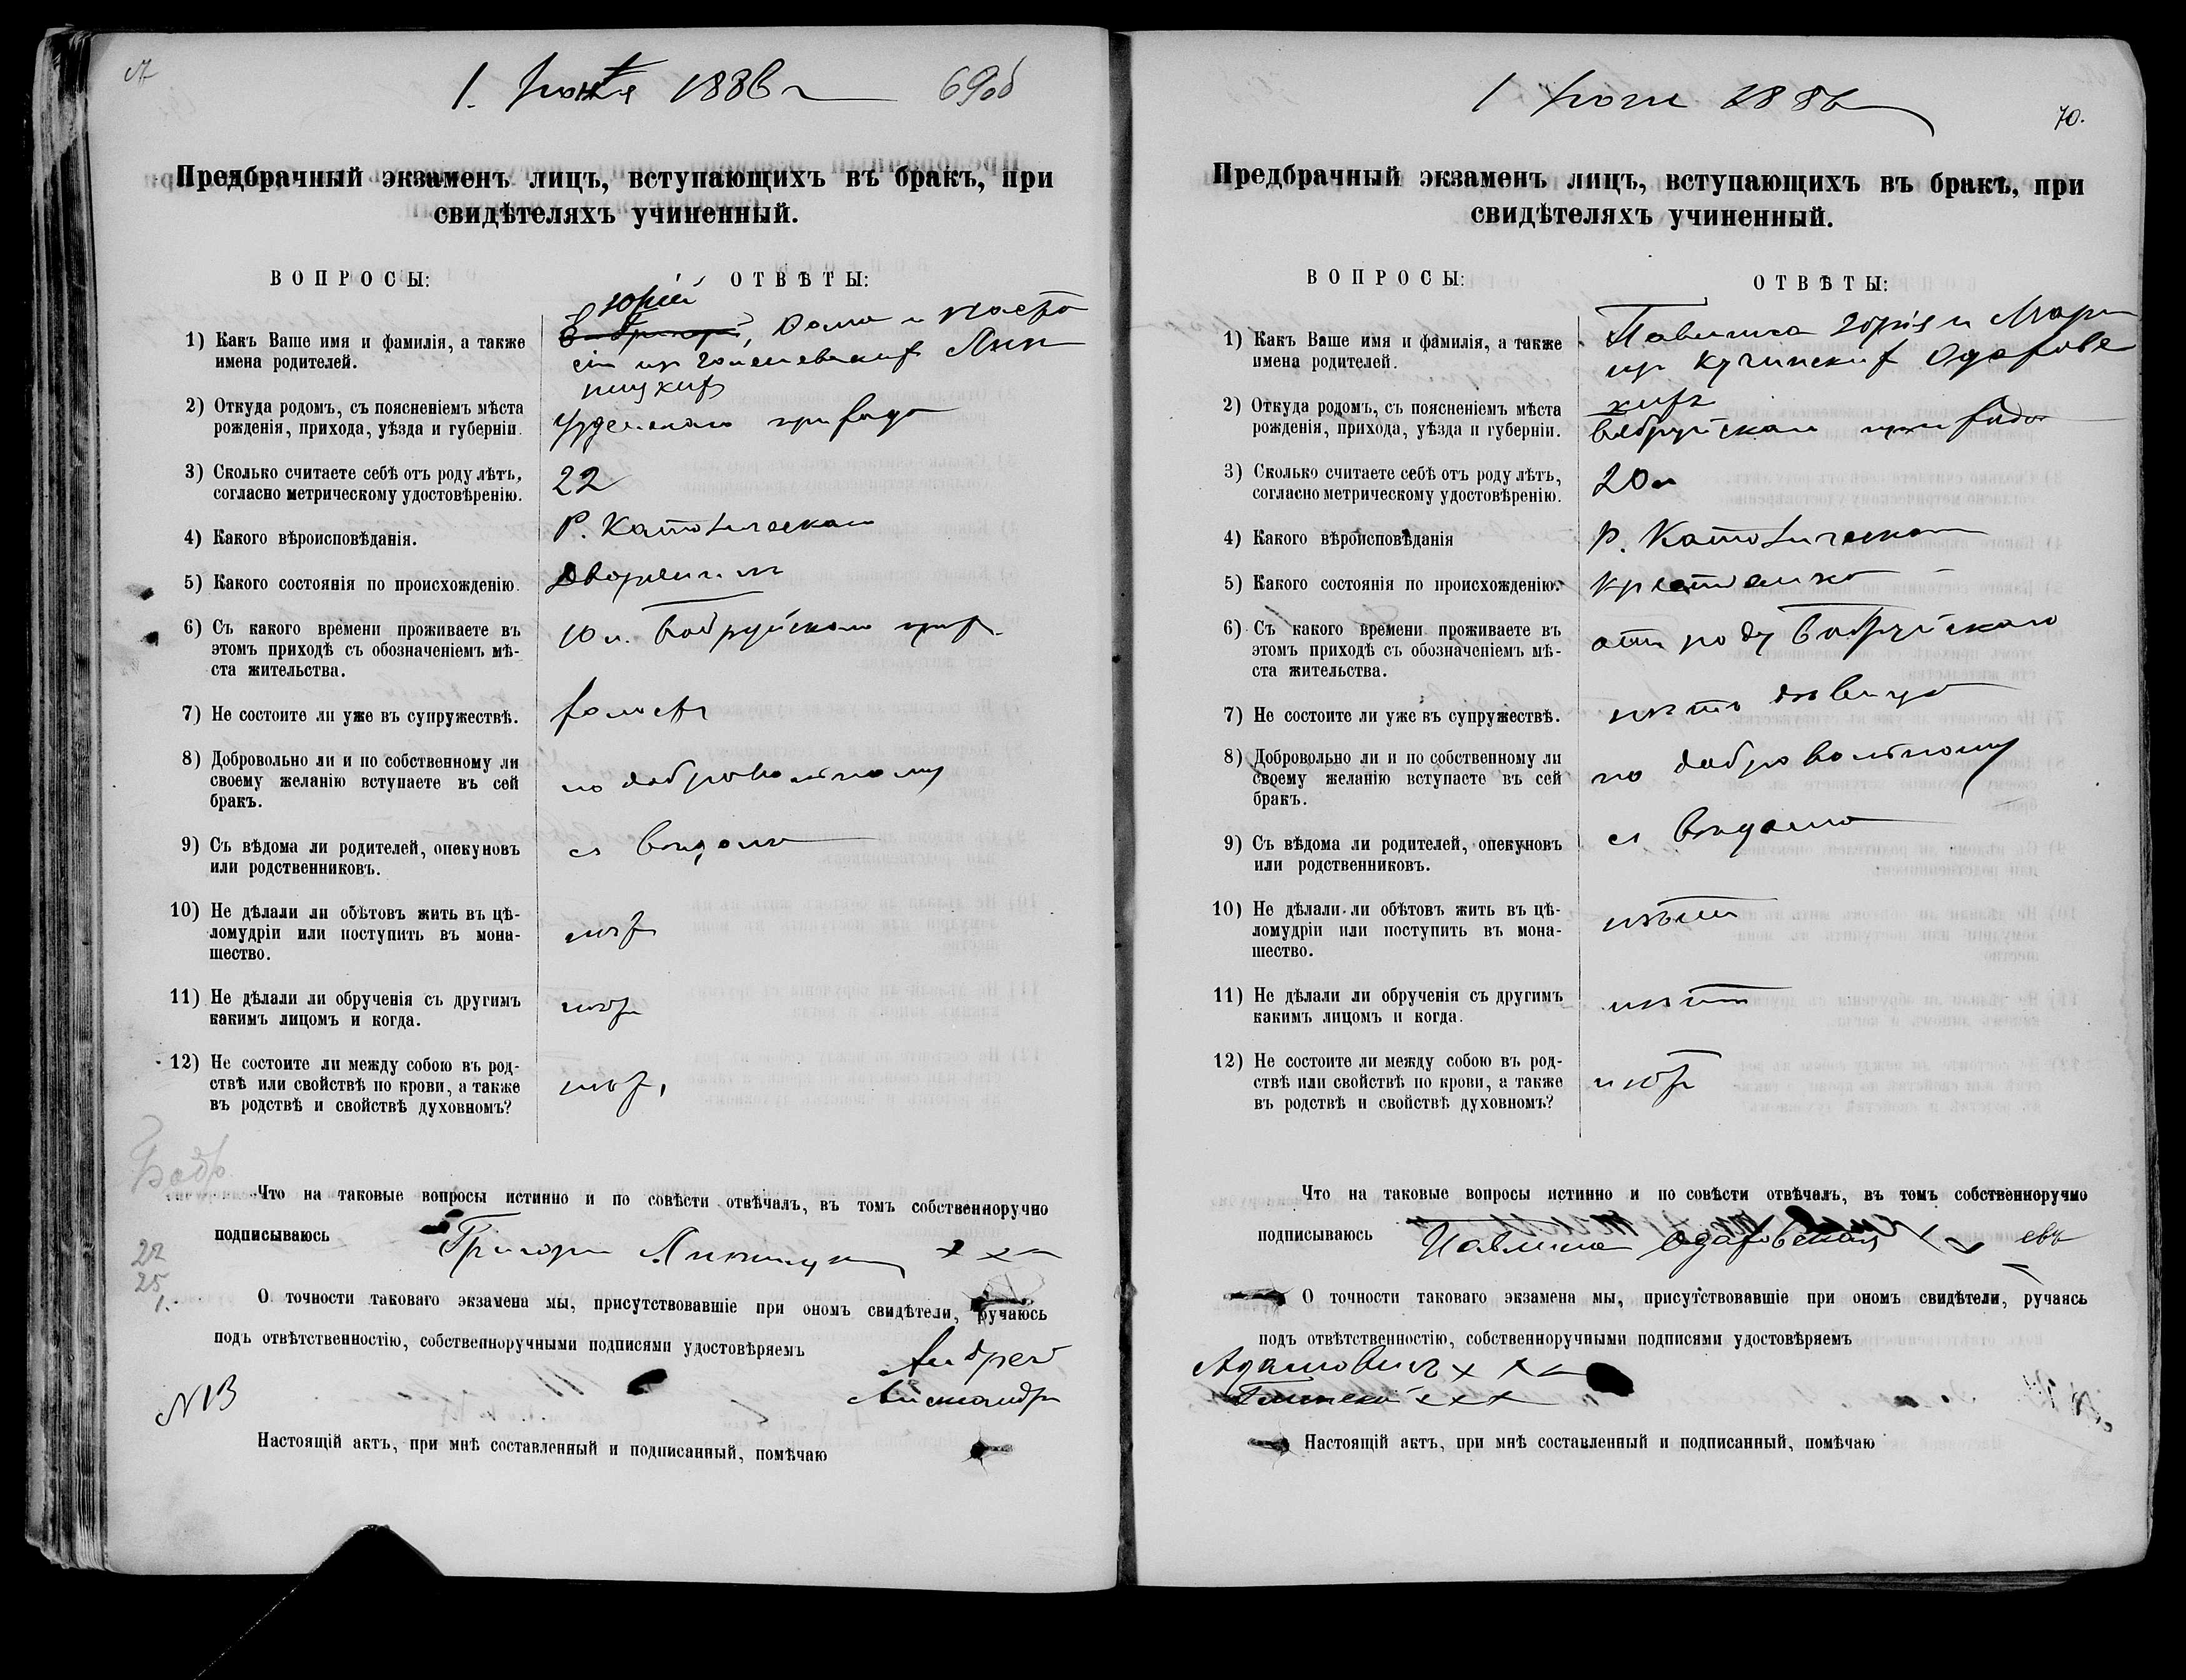 1. Іюня 1886 г
69об
Предбрачный экзаменъ лицъ, вступающихъ въ бракъ, при
свидѣтеляхъ учиненный.
ВОПРОСЫ:
ОТВѢТЫ:
1) Какъ Ваше имя и фамилія, а также
имена родителей.
Юрій
Ѳома и
2) Откуда родомъ, съ поясненіемъ мѣста
рожденія, прихода, уѣзда и губерніи.
3) Сколько считаете себѣ отъ роду лѣтъ,
согласно метрическому удостовѣренію.
22
4) Какого вѣроисповѣданія.
Р. Католическаго
5) Какого состоянія по происхожденію.
Дворянинъ
6) Съ какого времени проживаете въ
этомъ приходѣ съ обозначеніемъ мѣ-
ста жительства.
10 л. Бобруйскаго прих.
7) Не состоите ли уже въ супружествѣ.
холостъ
8) Добровольно ли и по собственному ли
своему желанію вступаете въ сей
бракъ.
по добровольному
9) Съ вѣдома ли родителей, опекуновъ
или родственниковъ.
съ вѣдома
10) Не дѣлали ли обѣтовъ жить въ цѣ-
ломудріи или поступить въ мона-
шество.
нѣтъ
11) Не дѣлали ли обрученія съ другимъ
какимъ лицомъ и когда.
нѣтъ
12) Не состоите ли между собою въ род-
ствѣ или свойствѣ по крови, а также
въ родствѣ и свойствѣ духовномъ?
нѣтъ,
Бобр
Что на таковые вопросы истинно и по совѣсти отвѣчалъ, въ томъ собственноручно
подписываюсь
Григорій
22
25
О точности таковаго экзамена мы, присутствовавшіе при ономъ свидѣтели, ручаюсь
подъ отвѣтственностію, собственноручными подписями удостовѣряемъ
Андрей
Александръ
N13
Настоящій актъ, при мнѣ составленный и подписанный, помѣчаю
1 Іюня 1886
70.
Предбрачный экзаменъ лицъ, вступающихъ въ бракъ, при
свидѣтеляхъ учиненный.
ВОПРОСЫ:
ОТВѢТЫ:
1) Какъ Ваше имя и фамилія, а также
имена родителей.
Павлина Юрія и Маріи
изъ Кучинскихъ Одаховс
кихъ
2) Откуда родомъ, съ поясненіемъ мѣста
рожденія, прихода, уѣзда и губерніи.
Бобруйскаго прихода
3) Сколько считаете себѣ отъ роду лѣтъ,
согласно метрическому удостовѣренію.
20 л
4) Какого вѣроисповѣданія
Р. Католическаго
5) Какого состоянія по происхожденію.
крестьянка
6) Съ какого времени проживаете въ
этомъ приходѣ съ обозначеніемъ мѣ-
ста жительства.
отъ роду Бобруйскаго
7) Не состоите ли уже въ супружествѣ.
нѣтъ дѣвица
8) Добровольно ли и по собственному ли
своему желанію вступаете въ сей
бракъ.
по добровольному
9) Съ вѣдома ли родителей, опекуновъ
или родственниковъ.
съ вѣдома
10) Не дѣлали ли обѣтовъ жить въ цѣ-
ломудріи или поступить въ мона-
шество.
нѣтъ
11) Не дѣлали ли обрученія съ другимъ
какимъ лицомъ и когда.
нѣтъ
12) Не состоите ли между собою въ род-
ствѣ или свойствѣ по крови, а также
въ родствѣ и свойствѣ духовномъ?
нѣтъ
Что на таковые вопросы истинно и по совѣсти отвѣчалъ, въ томъ собственноручно
подписываюсь
Павлина Одаховская
О точности таковаго экзамена мы, присутствовавшіе при ономъ свидѣтели, ручаясь
подъ отвѣтственностію, собственноручными подписями удостовѣряемъ
Адамовичъ x x x
Глинскій x x x
Настоящій актъ, при мнѣ составленный и подписанный, помѣчаю